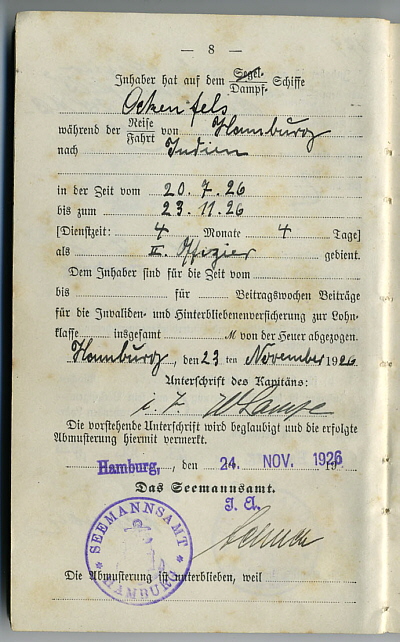 — 8 —
Inhaber hat auf dem Segel-/Dampf- Schiffe
Ockenfels
während der Reise/Fahrt von Hamburg
nach Indien
in der Zeit vom 20.7.26
bis zum 23.11.26
[Dienstzeit: 4 Monate 4 Tage]
als II. Offizier gedient.
Dem Inhaber sind für die Zeit vom
bis für Beitragswochen Beiträge
für die Invaliden- und Hinterbliebenenversicherung zur Lohn-
klasse insgesamt M von der Heuer abgezogen.
Hamburg, den 23 ten November 1926
Unterschrift des Kapitäns:
Die vorstehende Unterschrift wird beglaubigt und die erfolgte
Abmusterung hiermit vermerkt.
Hamburg, den 24. NOV. 1926 19
Das Seemannsamt.
J. A.
SEEMANNSAMT
HAMBURG
Die Abmusterung ist unterblieben, weil